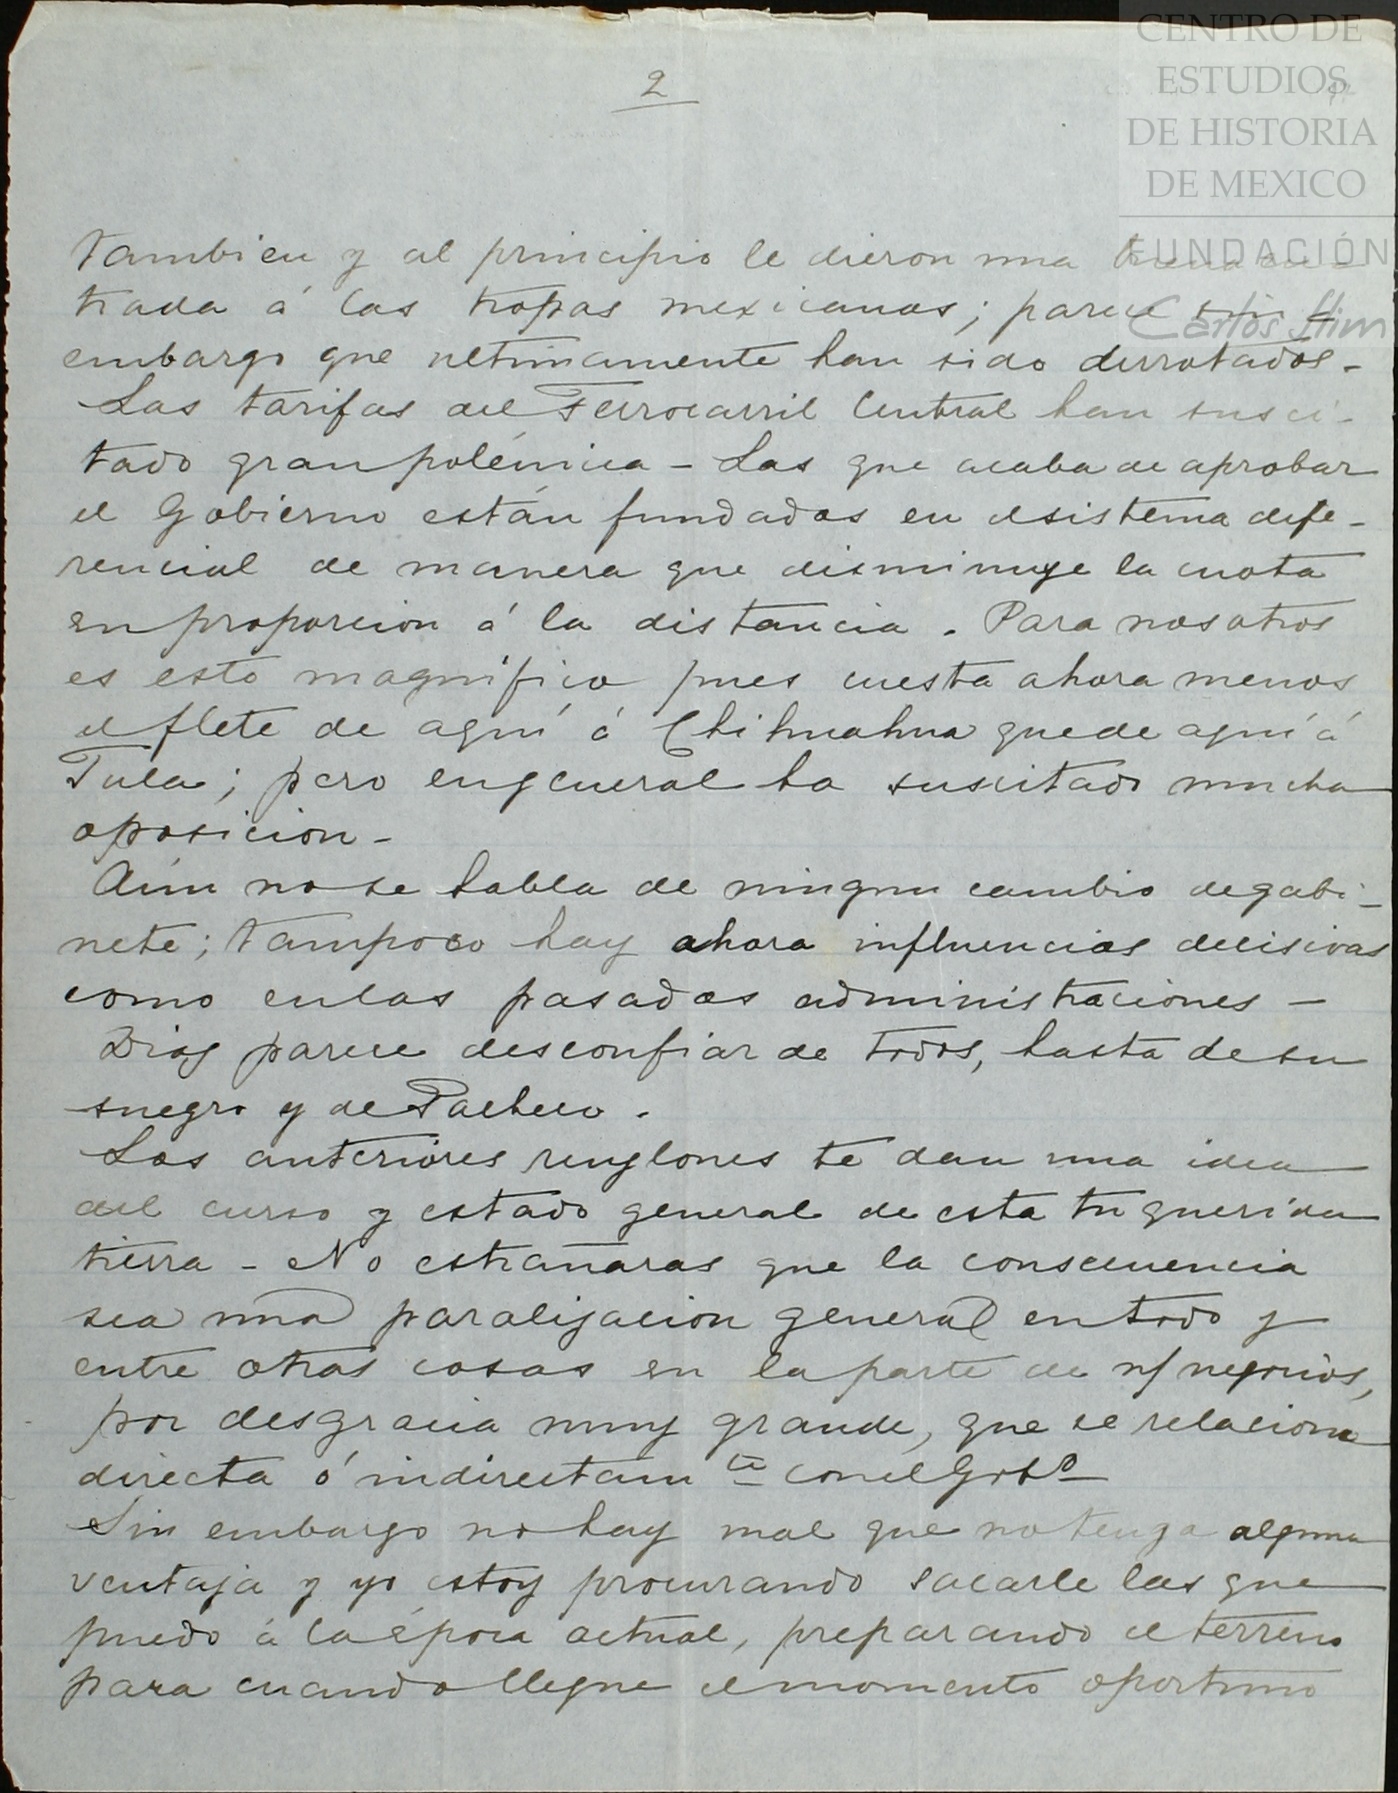 CENTRO DE
ESTUDIOS
DE HISTORIA
DE MEXICO
FUNDACIÓN
Carlos Slim
2
tambien y al principio le dieron una
trada á las tropas mexicanas; parece sin
embargo que ultimamente han sido derrotados-
Las tarifas del Ferrocarril Central han susci-
tado gran polémica - Las que acaba de aprobar
el Gobierno están fundadas en el sistema dife-
rencial de manera que disminuye la cuota
en proporcion á la distancia. Para nosotros
es esto magnífico pues cuesta ahora menos
el flete de aquí á Chihuahua que de aquí á
Tula; pero en general ha suscitado mucha
oposicion-
Aún no se habla de ningun cambio de gabi-
nete; tampoco hay ahora influencias decisivas
como en las pasadas administraciones -
Diaz parece desconfiar de todos, hasta de su
suegro y de Pacheco.
Los anteriores renglones te dan una idea
del curso y estado general de esta tu querida
tierra - No estrañaras que la consecuencia
sea una paralizacion general en todo y
entre otras cosas en la parte de n/ negocios,
por desgracia muy grande, que se relaciona
directa ó indirectam te con el Gobo
Sin embargo no hay mal que no tenga alguna
ventaja y yo estoy procurando sacarle las que
puedo á la época actual, preparando el terreno
para cuando llegue el momento oportuno